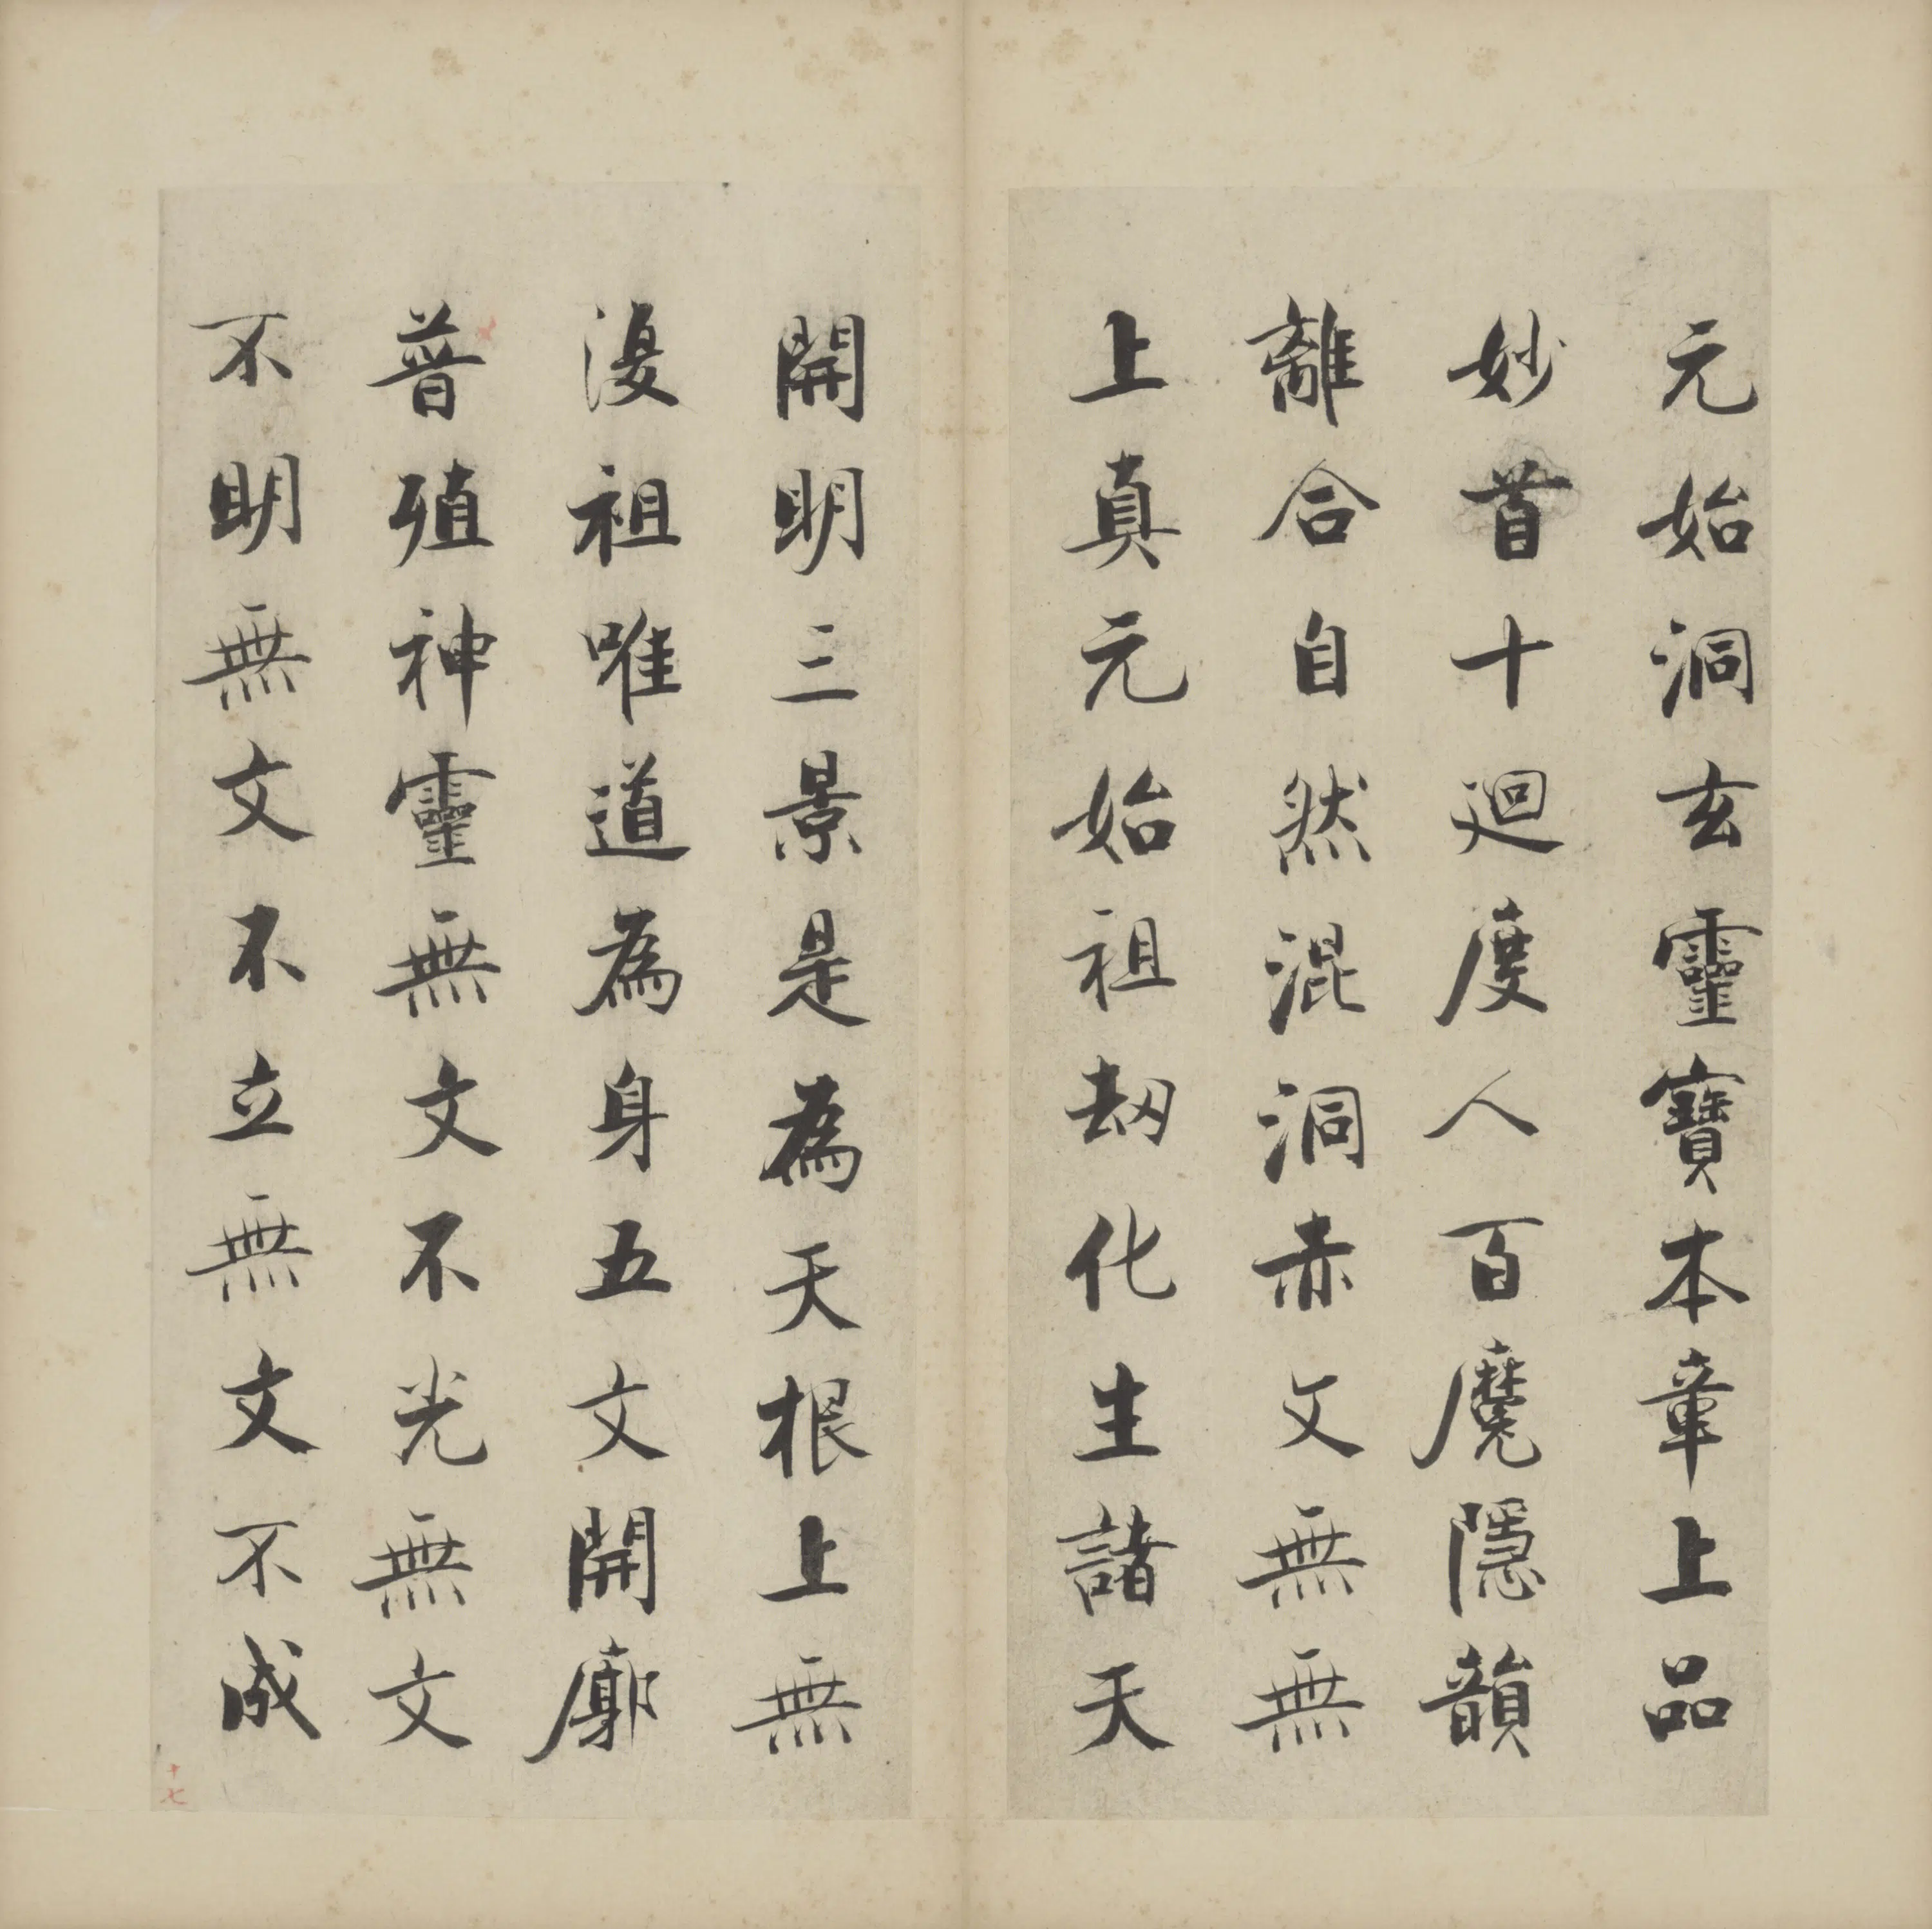 元始洞玄靈寶本章上品
妙首十廻度人百魔隱韻
離合自然混洞赤文無無
上真元始祖劫化生諸天
開明三景是為天根上無
復祖唯道為身五文開廓
普殖神靈無文不光無文
不明無文不立無文不成
十七